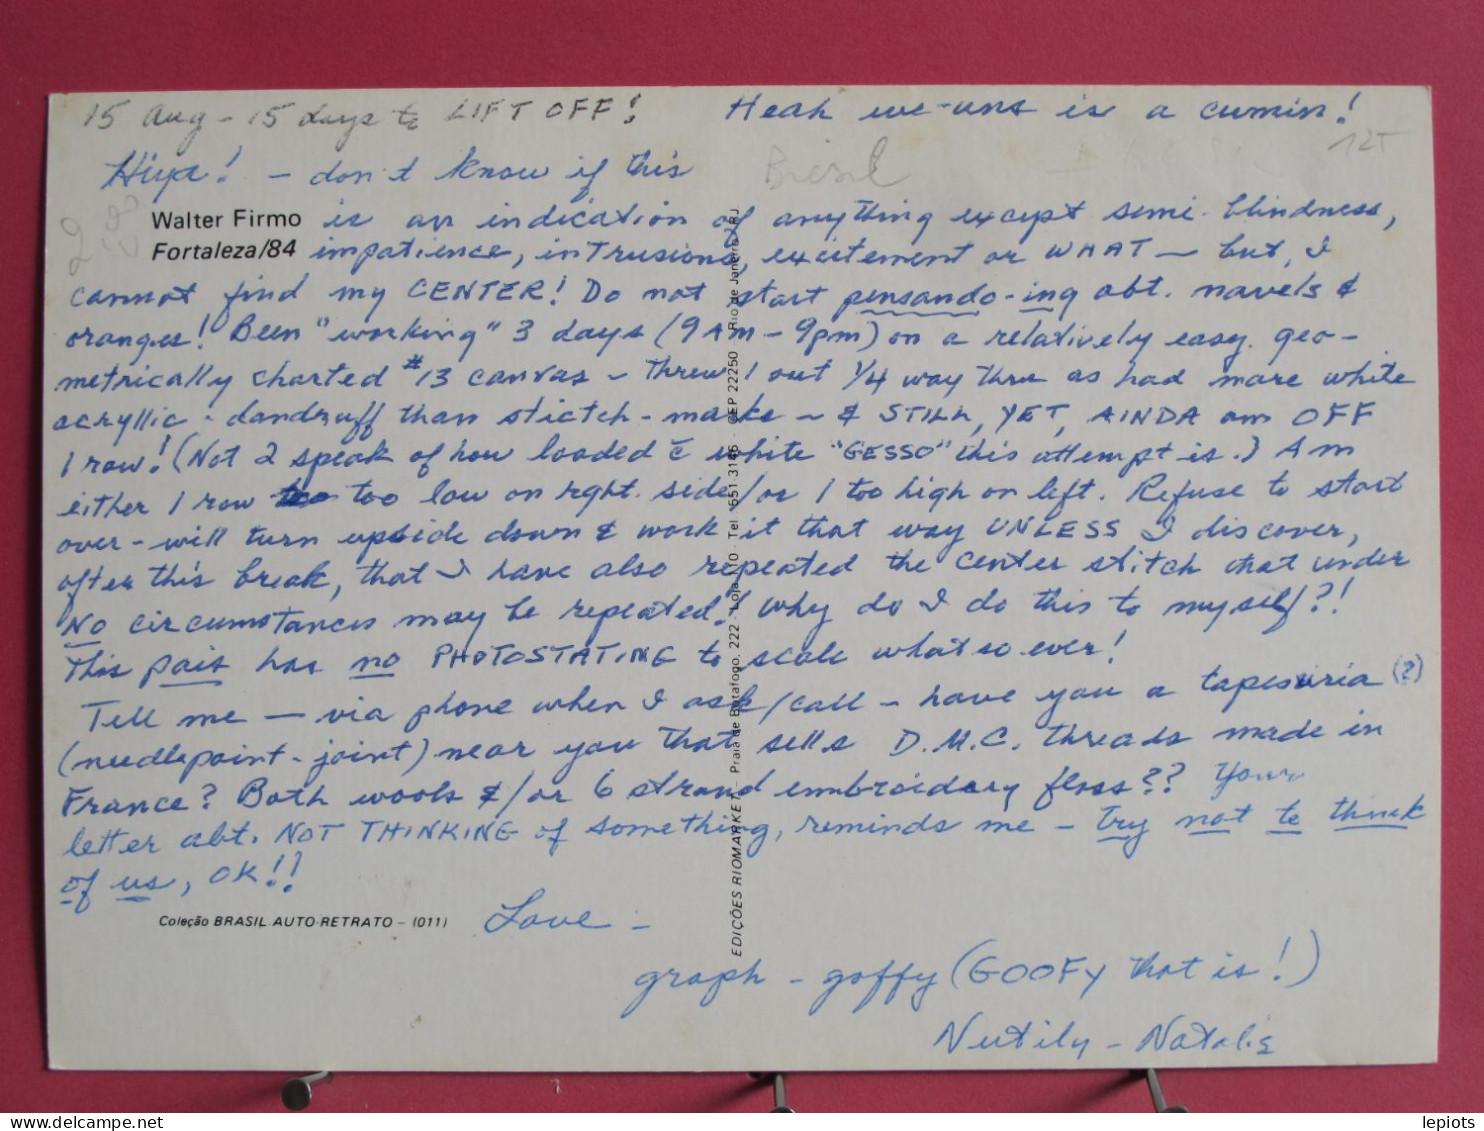 15 Aug - 15 days to LIFT OFF! Heah we-uns is a cumin!
125
Hiya! - don't know if this
Bresil
Walter Firmo
Fortaleza/84
is an indication of anything except semi-blindness,
impatience, intrusions, excitement or WHAT - but, I
cannot find my CENTER! Do not start pensando-ing abt. navels &
oranges! Been "working" 3 days (9 AM - 9pm) on a relatively easy. geo-
metrically charted #13 canvas - threw 1 out 1/4 way thru as had more white
acryllic - dandruff than stictch-marks - & STILL, YET, AINDA am OFF
1 row! (Not 2 speak of how loaded c̄ white "GESSO" this attempt is.) Am
either 1 row too low on rght. side/or 1 too high on left. Refuse to start
over - will turn upside down & work it that way UNLESS I discover,
after this break, that I have also repeated the center stitch that under
NO circumstances may be repeated! Why do I do this to myself?!
This pais has no PHOTOSTATING to scale what so ever!
Tell me - via phone when I ask/call - have you a tapesuria (?)
(needlepoint-joint) near you that sells D.M.C. threads made in
France? Both wools &/or 6 strand embroidary floss?? Your
letter abt. NOT THINKING of something, reminds me - try not to think
of us, OK!!
Coleção BRASIL AUTO-RETRATO - (011)
Love -
graph - goffy (GOOFY that is!)
Nutily - Natalis
EDIÇÕES RIOMARKET - Praia de Botafogo, 222 - Loja 110 - Tel 551 3146 - CEP 22250 - Rio de Janeiro - RJ
delcampe.net
lepiots